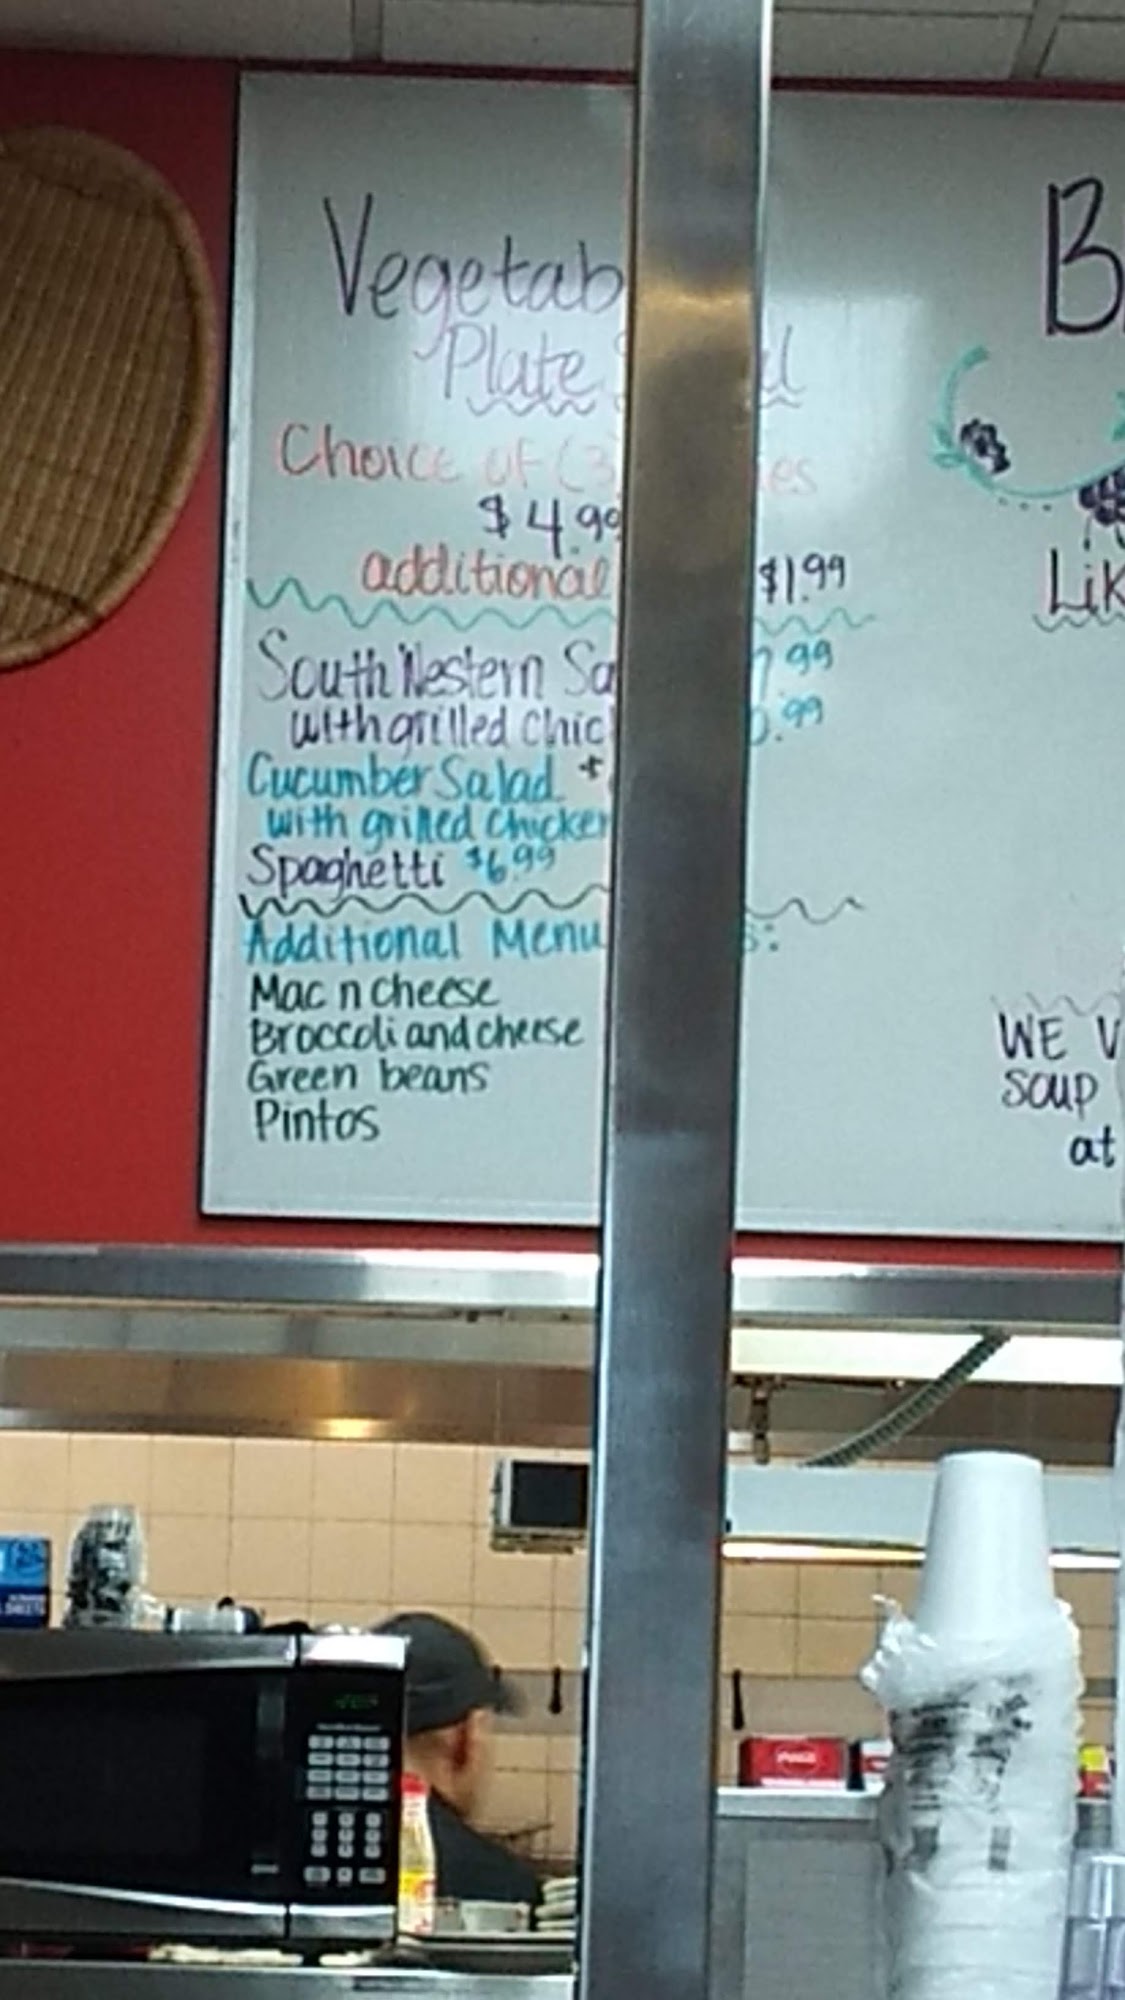 Vegetab
Plate
Choice of (3)
$4.99
additional $1.99
South Western Sa 7.99
with grilled chic .99
Cucumber Salad $
with grilled chicken
Spaghetti $6.99
Additional Menu s:
Mac n cheese
Broccoli and cheese
Green beans
Pintos
B
Lik
WE V
soup
at